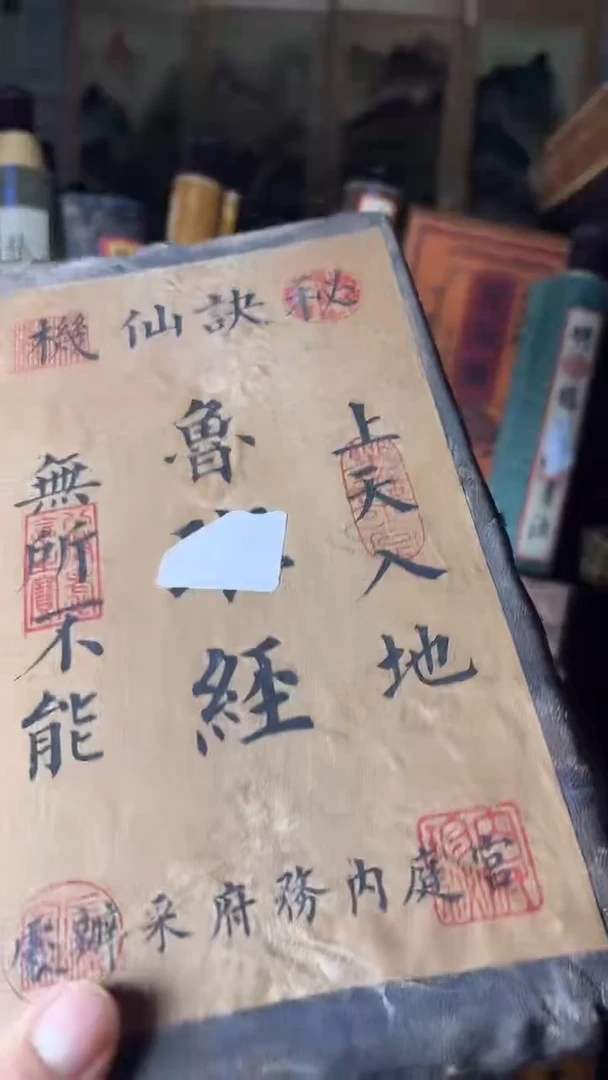 秘訣仙機
上天入地
魯 經
無所不能
宮庭内務府采辦